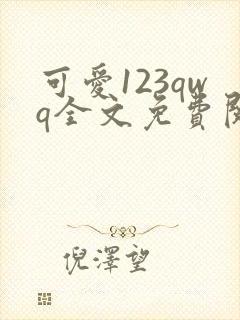 可愛123qw
q全文免費
倪澤望